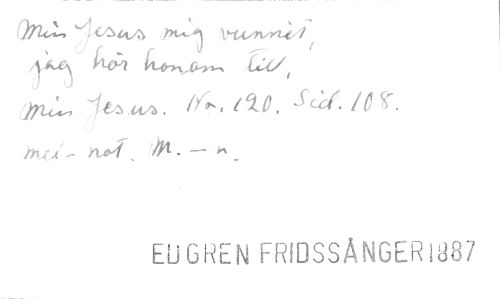 Min Jesus mig vunnit,
jag hör honom till,
Min Jesus. No. 120. Sid. 108.
mel- not. M. – n.
EUGREN FRIDSSÅNGER 1887